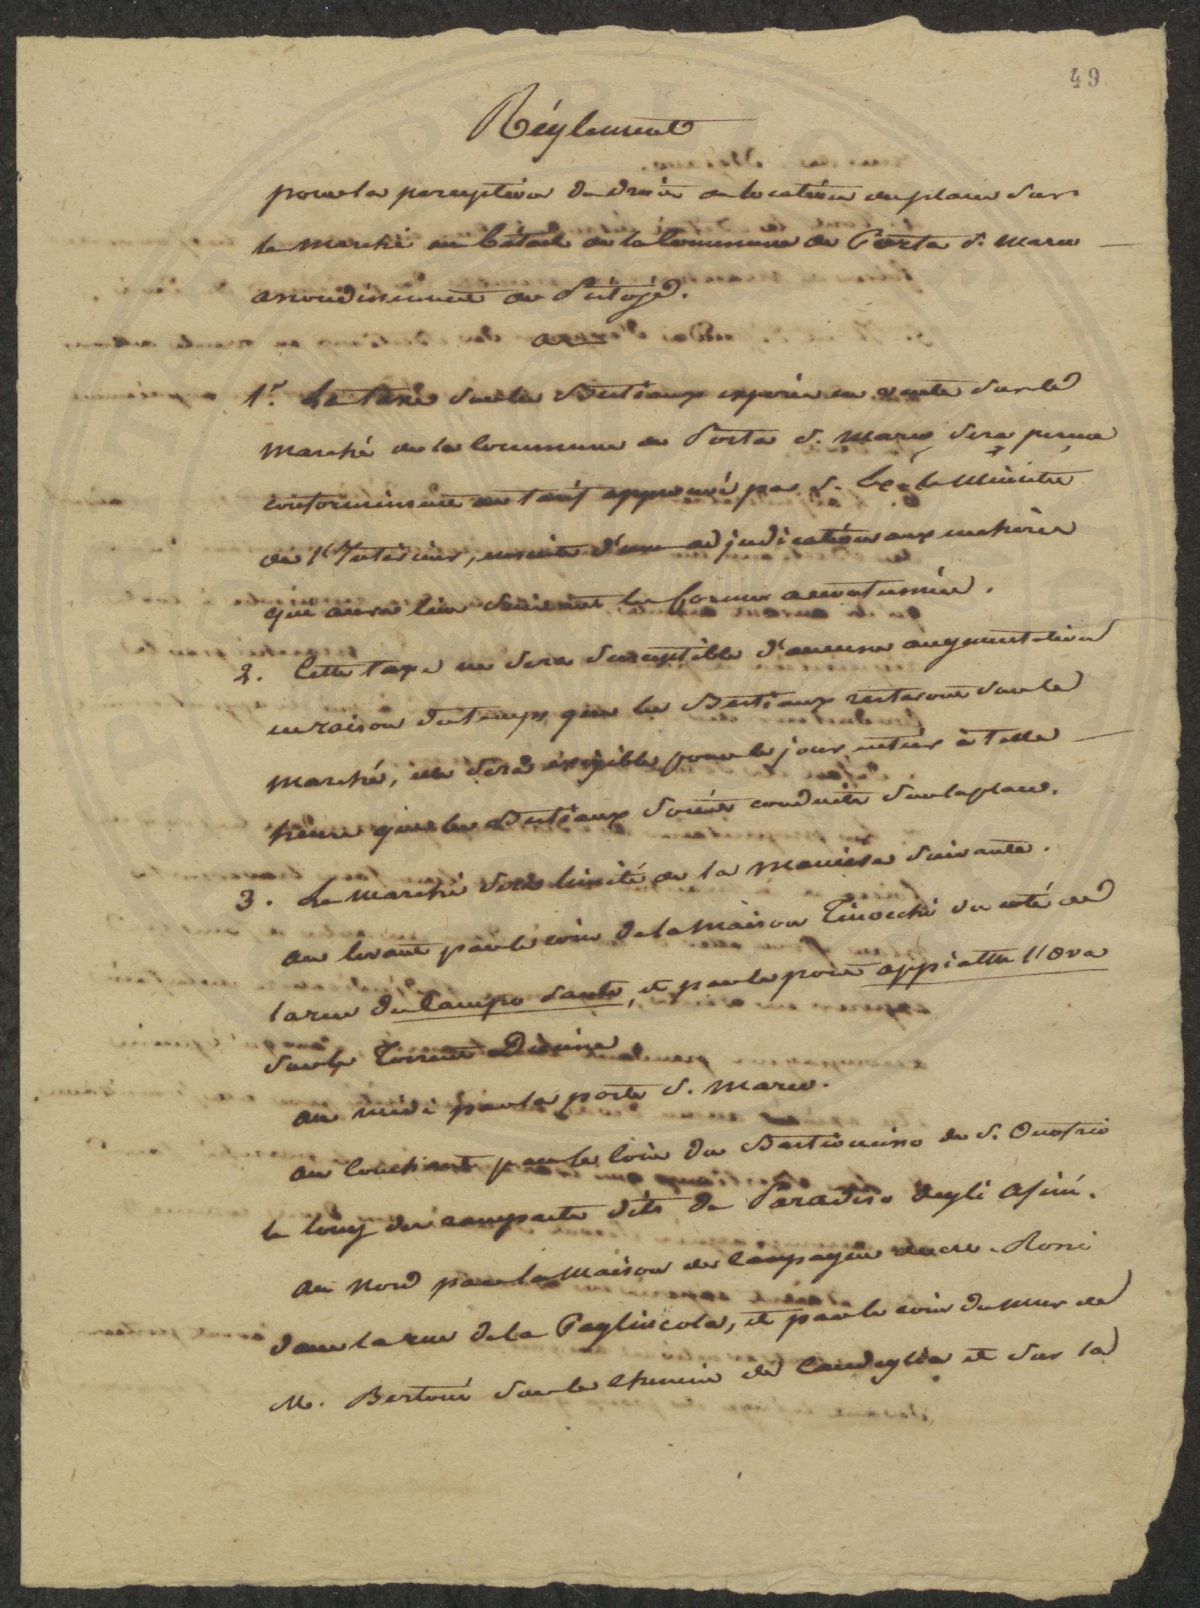 49
Réglement
pour la perception du droit de location des places sur
le Marché au bétail de la Commune de Porta S. Marco
arrondissement de Pistoje.
1.° La taxe sur les Bestiaux exposés en vente sur le
Marché de la Commune de Porta S. Marco sera perçue
conformément au tarif approuvé par S. Exc. le Ministre
de l'Intérieur, ensuite d'une adjudication aux enchères
qui aura lieu suivant les formes accoutumées.
2. Cette taxe ne sera susceptible d'aucune augmentation
en raison du temps que les Bestiaux resteront sur le
Marché, elle sera exigible pour le jour entier à telle
heure que les Bestiaux soient conduits sur la place.
3. Le Marché sera limité de la manière suivante.
au levant par le coin de la Maison Tinocchi du coté de
la rue du Campo Santo, et par le pont appiatta l'Ova
sur le Torrent
au midi par la porte S. Marco.
au Couchant par le coin du Bastioncino de S. Onofrio
le long des remparts dits du Paradiso degli Asini.
au Nord par la Maison de Campagne de Rossi
dans la rue de la Pagliucola, et par le coin du mur de
M. Bertoni sur le Chemin de Candeglia et sur la